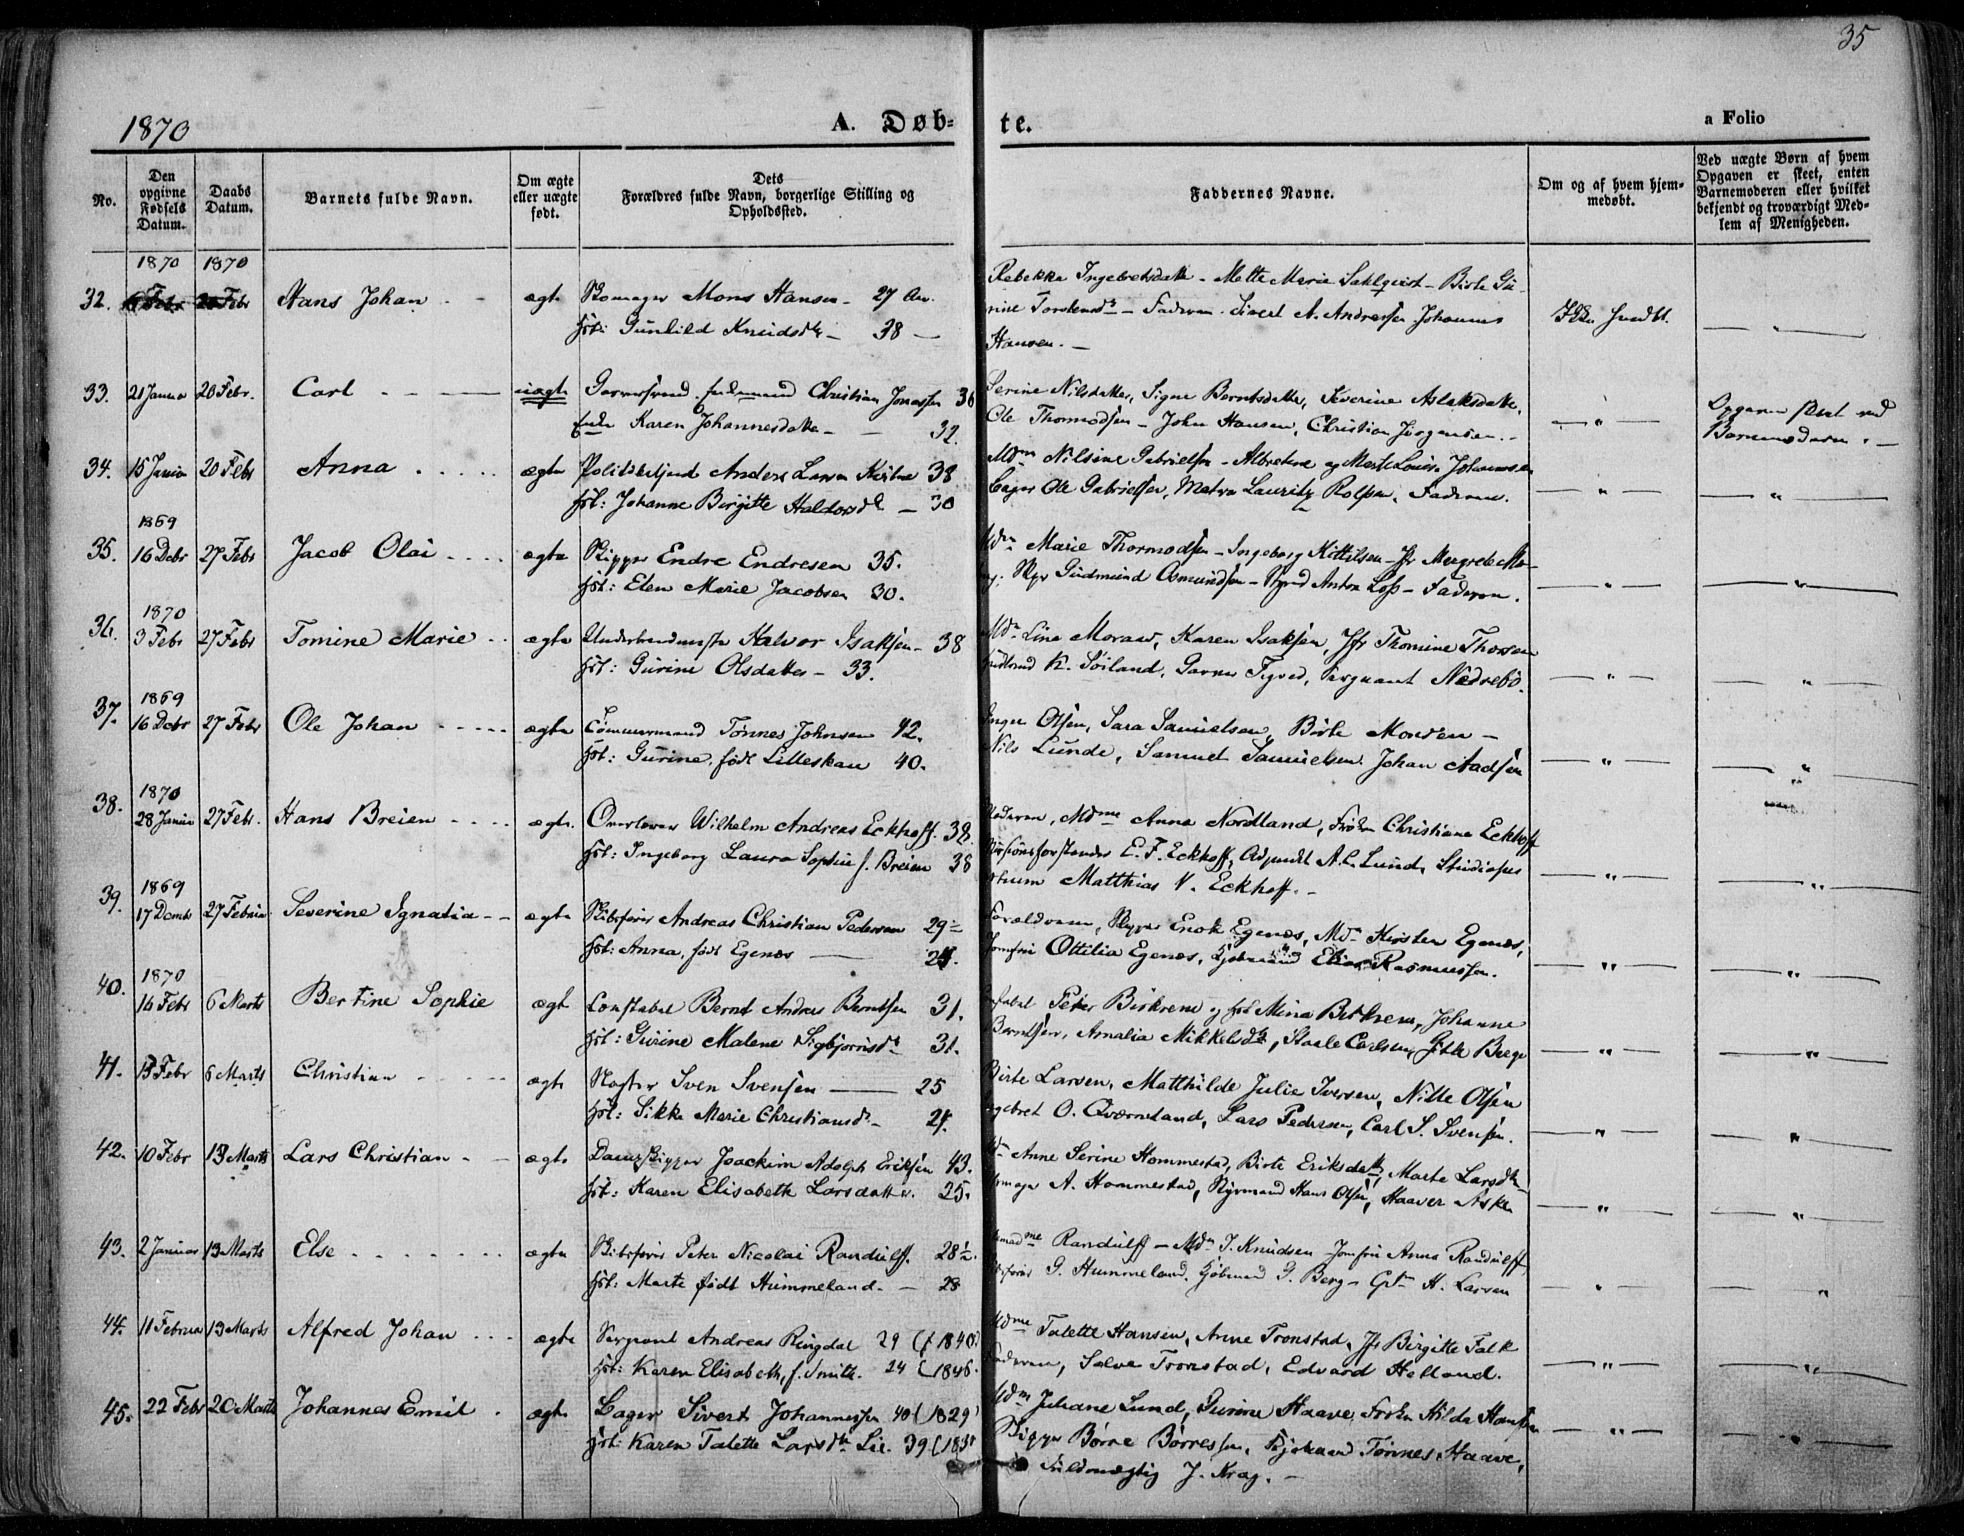 35
1870
A. Døb-
te.
a Folio
No.
Den opgivne Fødsels Datum.
Daabs Datum.
Barnets fulde Navn.
Om ægte eller uægte født.
Dets Forældres fulde Navn, borgerlige Stilling og Opholdssted.
Faddernes Navne.
Om og af hvem hjemmedøbt.
Ved uægte Børn af hvem Opgaven er skeet, enten Barnemoderen eller hvilket bekjendt og troværdigt Medlem af Menigheden.
1870 1870
32. Febr Febr Hans Johan ægte Mons Hansen 27 Aar.
Hst: Gunhild Knudsdtr 38
Rebekka Ingebretsdatter - Mette Marie Sahlqvist - Birte Gu-
rine Torstensdtr - Faderen. Sivert A. Andressen Johannes
Hansen. -
33. 21 Januar 20 Febr. Carl uægte Christian Jonassen 36
Karen Johannesdatter 32.
Serine Nilsdatter, Signe Berntsdatter, Severine Aslaksdatter,
Ole Thormodsen - John Hansen, Christian Jørgensen. -
Opgaven skeet ved
Barnemoderen. -
34. 15 Januar 20 Febr Anna ægte Politibetjent Anders Larsen 38
Hst: Johanne Birgitte Halvorsdtr 30
Mdm Nilsine Gabrielsen - Albretine og Marte Louise Johannesen
Bager Ole Gabrielsen, Lauritz Rolfsen, Faderen.
1869
35. 16 Debr 27 Febr Jacob Olai ægte Skipper Endre Endresen 35.
Hst: Elen Marie Jacobsen 30.
Mdm Marie Thormodsen - Ingeborg Kittilsen - Jfr Margrete
Gudmund Osmundsen - Anton Loss - Faderen.
1870
36. 3 Febr 27 Febr Tomine Marie ægte Halvor Isaksen 38
Hst: Gurine Olsdatter 33.
Mdm Line Moraw, Karen Isaksen, Jfr Thomine Thorsen
K. Söiland, Garver Tegved, Sergeant Nedrebö.
1869
37. 16 Debr 27 Febr Ole Johan ægte Tømmermand Tönnes Johnsen 42.
Hst: Gurine, født Lilleskau 40.
Inger Olsen, Sara Samuelsen, Birte Monsen -
Nils Lunde, Samuel Samuelsen, Johan Aadsen
1870
38. 28 Januar 27 Febr. Hans Breien ægte Overlærer Wilhelm Andreas Eckhoff. 38
Hst: Ingeborg Laura Sophie f. Breien 38
Faderen, Mdme Anna Nordland, Frøken Christiane Eckhoff
E. F. Eckhoff, Adjunkt A. C. Lund, Studiosus
Matthias V. Eckhoff. -
1869
39. 17 Decmb 27 Februar Severine Ignatia ægte Skibsfører Andreas Christian Pedersen 29
Hst: Anna, født Egenæs
Forældrene, Skipper Enok Egenæs, Mdm Kirsten Egenæs,
Jomfru Ottilia Egenæs, Kjøbmand Elias Rasmussen.
1870
40. 16 Febr 6 Marts Bertine Sophie ægte Constabel Bernt Andreas Berntsen 31.
Hst: Gurine Malene Sigbjörnsdtr 31.
Peter Birkrem og Hst Mina Birkrem, Johanne
Berntsen, Amalia Mikkelsdtr, Staale Carlsen, Berge
41. 13 Febr 6 Marts Christian ægte Slagter Sven Svensen 25
Hst: Sikke Marie Christiansdtr
Birte Larsen, Matthilde Julie Iversen, Nille Olsen
Ingebret O. Qværneland, Lars Pedersen, Carl S. Svensen.
42. 10 Febr 13 Marts Lars Christian ægte Joachim Adolph Eriksen 43.
Hst: Karen Elisabeth Larsdatter. 25.
Mdm Anne Serine Hommestad, Birte Eriksdatter, Marte Larsdtr
A. Hommestad, Styrmand Hans Olsen, Haaver Aske
43. 2 Januar 13 Marts Else ægte Skibsfører Peter Nicolai Randulff. 28½.
Hst: Marte født Hummeland. 28
Randulff - Mdm T. Knudsen Jomfru Anna Randulff
G. Hummeland. Kjøbmand G. Berg - H. Larsen
44. 11 Februar 13 Marts Alfred Johan ægte Sergeant Andreas Ringdal 29 (f 1840)
Hst: Karen Elisabeth, f. Smith. 24 (1846
Mdme Talette Hansen, Anne Tronstad, Jfr Birgitte Falk
Faderen, Salve Tronstad, Edvard Helland.
45. 22 Febr 20 Marts Johannes Emil ægte Bager Sivert Johannessen 40 (1829)
Hst: Karen Talette Larsdtr Lie. 39 (183
Mdm Juliane Lund, Gurine Haave, Frøken Hilda Hansen
Skipper Børre Børressen, Tönnes Haave,
Fuldmægtig J. Krag. -